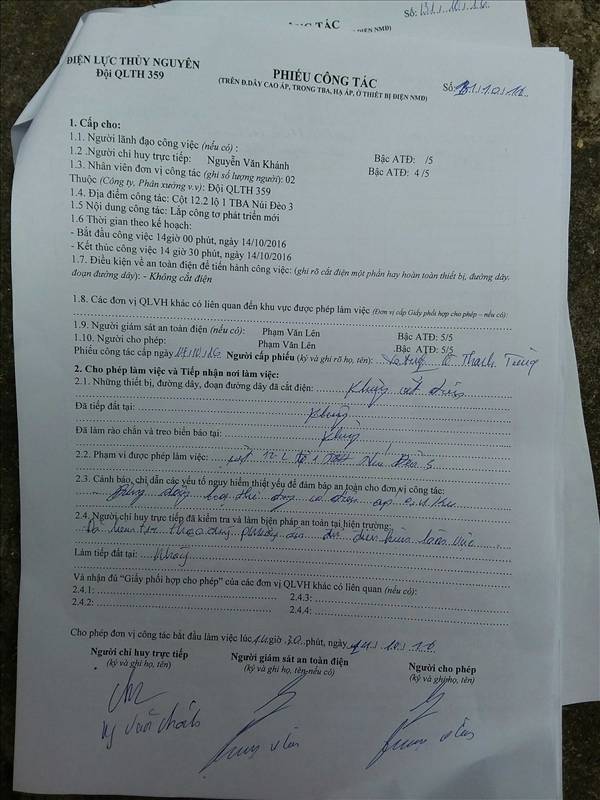 ÔNG TÁC
Số:
ĐIỆN NMĐ)
ĐIỆN LỰC THỦY NGUYÊN
Đội QLTH 359
PHIẾU CÔNG TÁC
(TRÊN Đ.DÂY CAO ÁP, TRONG TBA, HẠ ÁP, Ở THIẾT BỊ ĐIỆN NMĐ)
Số:
1. Cấp cho:
1.1. Người lãnh đạo công việc (nếu có) :
Bậc ATĐ: /5
1.2 .Người chỉ huy trực tiếp: Nguyễn Văn Khánh
Bậc ATĐ: 4 /5
1.3. Nhân viên đơn vị công tác (ghi số lượng người): 02
Thuộc (Công ty, Phân xưởng v.v): Đội QLTH 359
1.4. Địa điểm công tác: Cột 12.2 lộ 1 TBA Núi Đèo 3
1.5 Nội dung công tác: Lắp công tơ phát triển mới
1.6 Thời gian theo kế hoạch:
- Bắt đầu công việc 14giờ 00 phút, ngày 14/10/2016
- Kết thúc công việc 14 giờ 30 phút, ngày 14/10/2016
1.7. Điều kiện về an toàn điện để tiến hành công việc: (ghi rõ cắt điện một phần hay hoàn toàn thiết bị, đường dây,
đoạn đường dây): - Không cắt điện
1.8. Các đơn vị QLVH khác có liên quan đến khu vực được phép làm việc (Đơn vị cấp Giấy phối hợp cho phép – nếu có):
1.9. Người giám sát an toàn điện (nếu có): Phạm Văn Lên Bậc ATĐ: 5/5
1.10. Người cho phép: Phạm Văn Lên Bậc ATĐ: 5/5
Phiếu công tác cấp ngày Người cấp phiếu (ký và ghi rõ họ, tên): Thanh Tùng
2. Cho phép làm việc và Tiếp nhận nơi làm việc:
2.1. Những thiết bị, đường dây, đoạn đường dây đã cắt điện: Không cắt điện
Đã tiếp đất tại: Không
Đã làm rào chắn và treo biển báo tại: Không
2.2. Phạm vi được phép làm việc: cột 12.2 lộ 1 TBA Núi Đèo 3
2.3. Cảnh báo, chỉ dẫn các yếu tố nguy hiểm thiết yếu để đảm bảo an toàn cho đơn vị công tác:
2.4. Người chỉ huy trực tiếp đã kiểm tra và làm biện pháp an toàn tại hiện trường:
Làm tiếp đất tại: Không
Và nhận đủ “Giấy phối hợp cho phép” của các đơn vị QLVH khác có liên quan (nếu có):
2.4.1: 2.4.3:
2.4.2: 2.4.4:
Cho phép đơn vị công tác bắt đầu làm việc lúc 14 giờ phút, ngày 14 10 16
Người chỉ huy trực tiếp Người giám sát an toàn điện Người cho phép
(ký và ghi họ, tên) (ký và ghi họ, tên nếu có) (ký và ghi họ, tên)